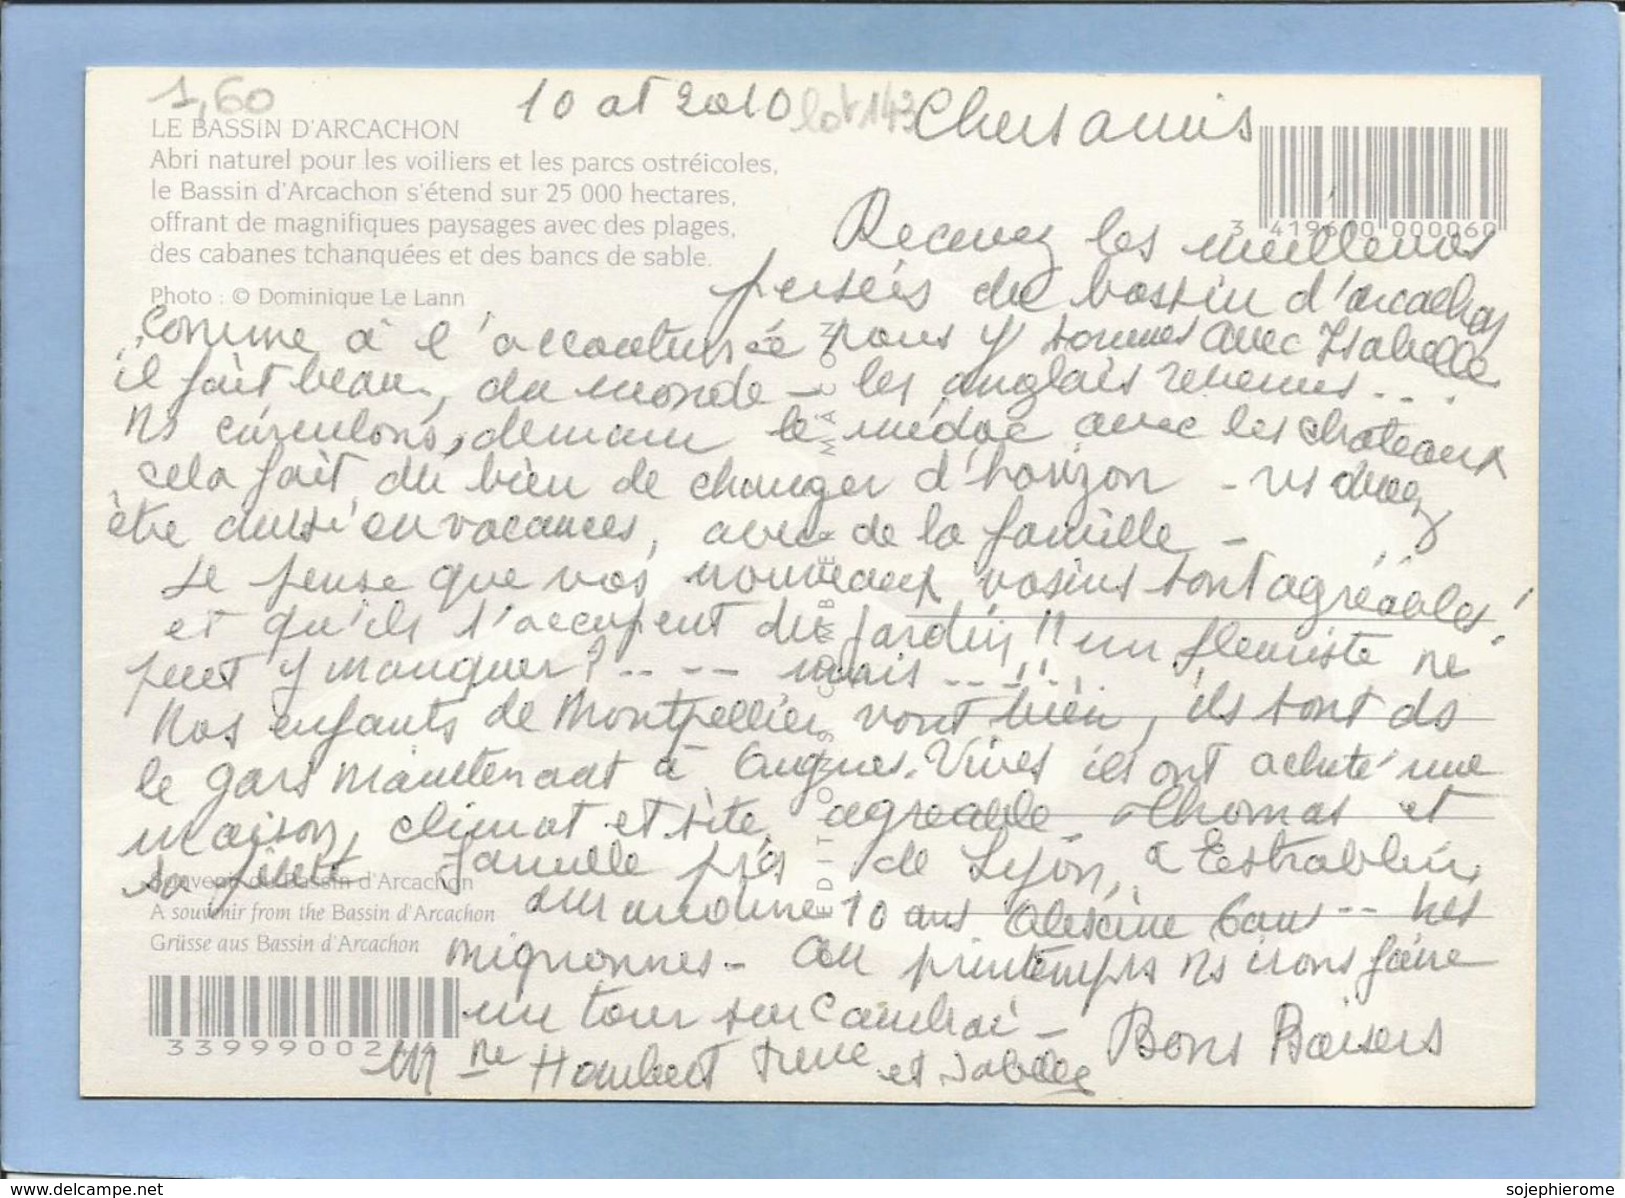 1,60
10 at 2010 lot 143 Chers amis
LE BASSIN D'ARCACHON
Abri naturel pour les voiliers et les parcs ostréicoles,
le Bassin d'Arcachon s'étend sur 25 000 hectares,
offrant de magnifiques paysages avec des plages,
des cabanes tchanquées et des bancs de sable.
Photo : © Dominique Le Lann
3 419600 000060
Recevez les meilleures
pensées du bassin d'arcachon
comme à l'accoutumée nous y sommes avec Isabelle
il fait beau, du monde - les anglais revenus...
ns circulons, demain le médoc avec les chateaux
cela fait du bien de changer d'horizon - vs devez
être aussi en vacances, avec de la famille -
Je pense que vos nouveaux voisins sont agréables!
et qu'ils s'occupent du jardin!! un fleuriste ne
peut y manquer? .. -- mais ..!!..
Nos enfants de Montpellier vont bien, ils sont ds
le gars maintenant à Vives ils ont acheté une
maison, climat et site agréable - Thomas et
sa petite famille près de Lyon, à Estrablin,
10 ans 6 ans -- très
mignonnes - au printemps ns irons faire
un tour sur Cambrai -
Bons Baisers
Mme et Isabelle
EDITIONS COMBIER MACON
Souvenir du Bassin d'Arcachon
A souvenir from the Bassin d'Arcachon
Grüsse aus Bassin d'Arcachon
33999002
www.delcampe.net
sojephierome